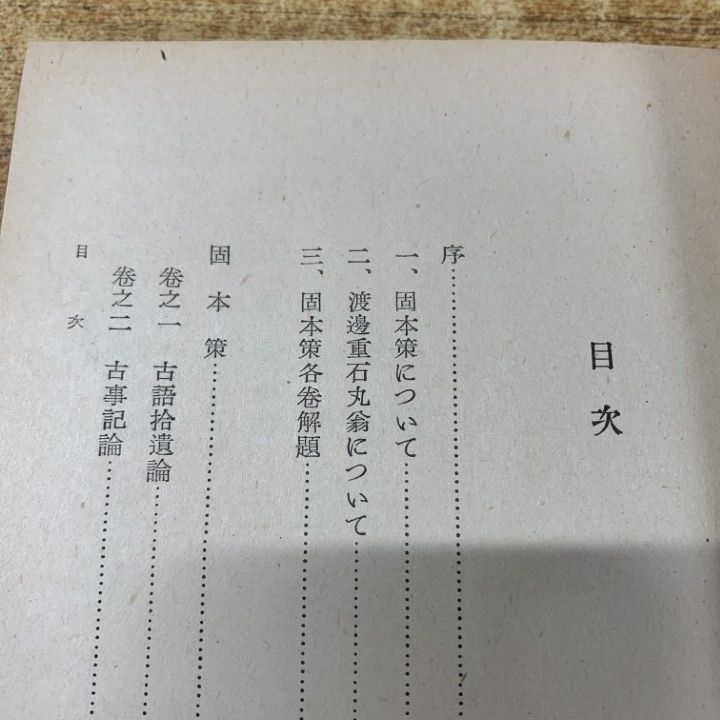 目次
序……………………
一、固本策について……………
二、渡邊重石丸翁について…………
三、固本策各卷解題……………
固本策…………………
卷之一 古語拾遺論……………
卷之二 古事記論……………
目次